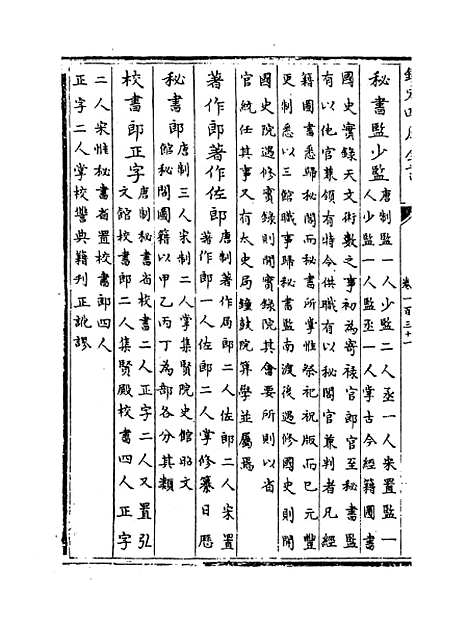 欽定四庫全書
卷一百三十一
秘書監少監
唐制監一人少監二人丞一人宋置監一
人少監一人監丞一人掌古今經籍圖書
國史實錄天文術數之事初為寄祿官郎官至秘書監
有以他官兼領有特令供職有以秘閣官兼判者凡經
籍圖書悉歸秘閣而秘書所掌惟祭祀祝版而已元豐
更制悉以三館職事歸秘書監南渡後遇修國史則開
國史院遇修實錄則開實錄院其會要所則以省
官統任其事又有太史局鐘鼓院算學並屬焉
著作郎著作佐郎
唐制著作局郎二人佐郎二人宋置
著作郎一人佐郎二人掌修纂日歷
秘書郎
唐制三人宋制二人掌集賢院史館昭文
館秘閣圖籍以甲乙丙丁為部各分其類
校書郎正字
唐制秘書省校書二人正字二人又置弘
文館校書郎二人集賢殿校書四人正字
二人宋惟秘書省置校書郎四人
正字二人掌校讐典籍刊正訛謬